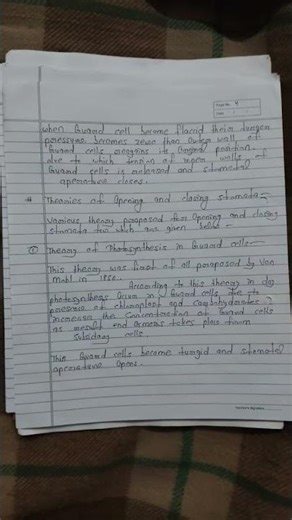 Page No. 4
Date
when Guard cell become flaccid their turgor
pressure becomes zero than Outer wall, of
Guard cells acquires its Original position.
due to which tension of inner walls of
Guard cells is released and stomatal
aperature closes.
# Theories of Opening and closing stomata:-
Various, theory proposed for Opening and closing
stomata too which are given below -
① Theory of Photosynthesis in Guard cells:-
This theory was first of all proposed by Von
Mohl in 1856.
According to this theory in day
photosynthesis Occur in Guard cells due to
presence of chloroplast and carbohydrates
increases the Concentration of Guard cells
as result end Osmosis takes place from
Subsidary cells.
This Guard cells become turgid and stomatal
aperature Opens.